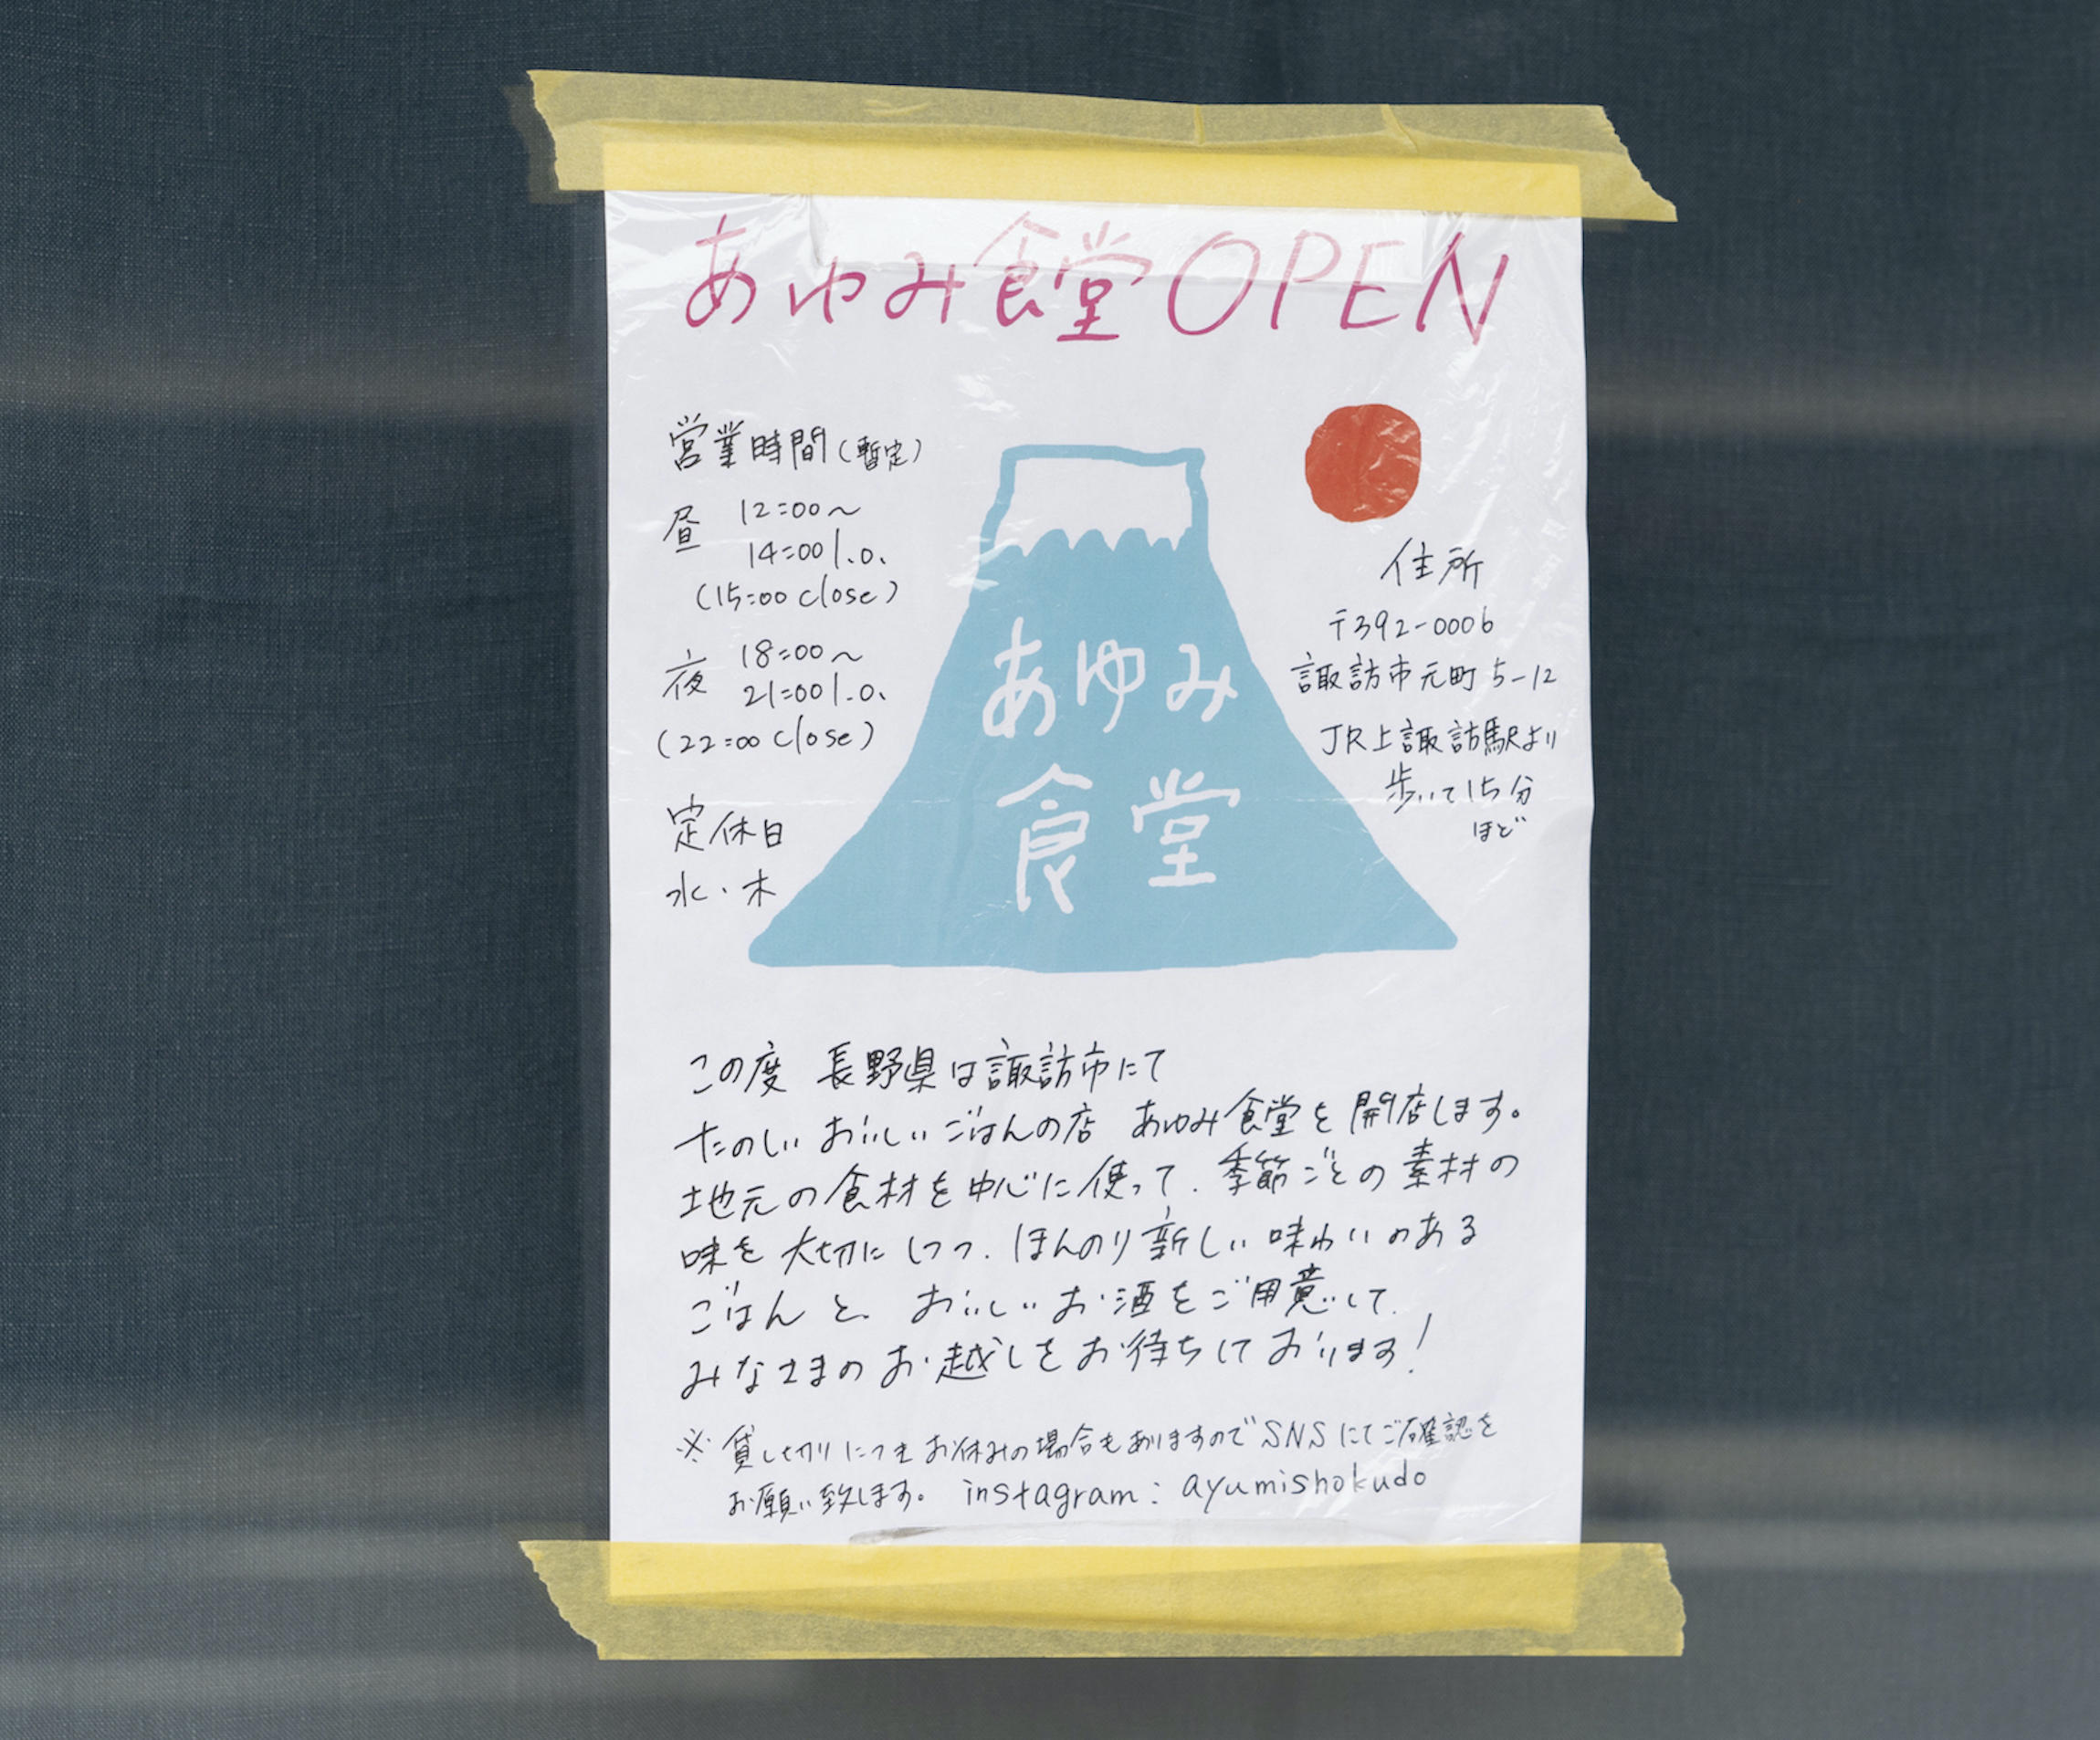 あゆみ食堂OPEN
営業時間(暫定)
昼 12:00〜
14:00 l.o.
(15:00 close)
夜 18:00〜
21:00 l.o.
(22:00 close)
定休日
水・木
あゆみ
食堂
住所
〒392-0006
諏訪市元町5-12
JR上諏訪駅より
歩いて15分
ほど
この度 長野県は諏訪市にて
たのしい おいしい ごはんの店 あゆみ食堂を開店します。
地元の食材を中心に使って、季節ごとの素材の
味を大切にしつつ、ほんのり新しい味わいのある
ごはんと、おいしいお酒をご用意して、
みなさまのお越しをお待ちしております!
※貸し切りにつきお休みの場合もありますのでSNSにてご確認を
お願い致します。 instagram: ayumishokudo